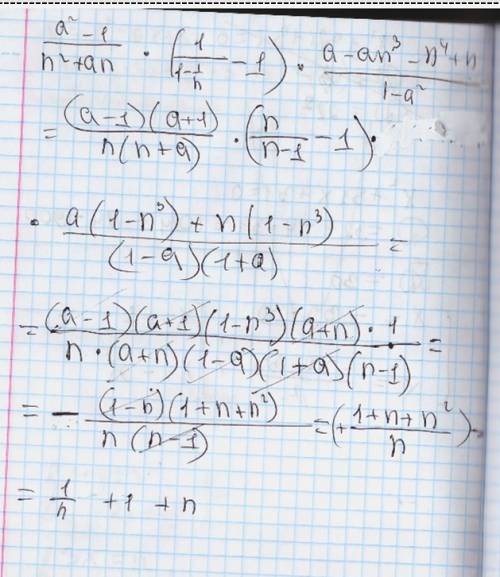 (a² - 1)/(n² + an) · (1/(1 - 1/n) - 1) · (a - an³ - n⁴ + n)/(1 - a²)
= ((a - 1)(a + 1))/(n(n + a)) · (n/(n - 1) - 1) ·
· (a(1 - n³) + n(1 - n³))/((1 - a)(1 + a)) =
= ((a - 1)(a + 1)(1 - n³)(a + n) · 1)/(n · (a + n)(1 - a)(1 + a)(n - 1)) =
= - ((1 - n)(1 + n + n²))/(n(n - 1)) = (+ (1 + n + n²)/n) ·
= 1/n + 1 + n